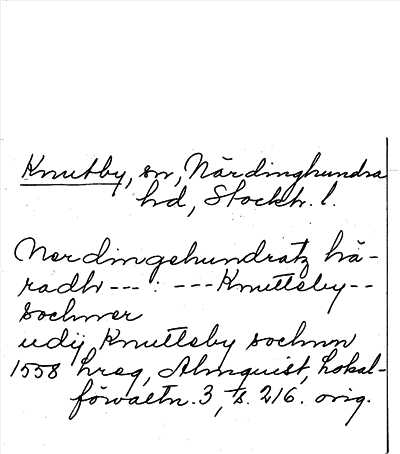 Knutby, sn, Närdinghundra
hd, Stockh. l.
Nerdingehundratz hä-
radh --- : --- Knutteby --
sochner
udij Knutteby sochnn
1558 hreg, Almquist, Lokal-
förvaltn. 3, s. 216. orig.